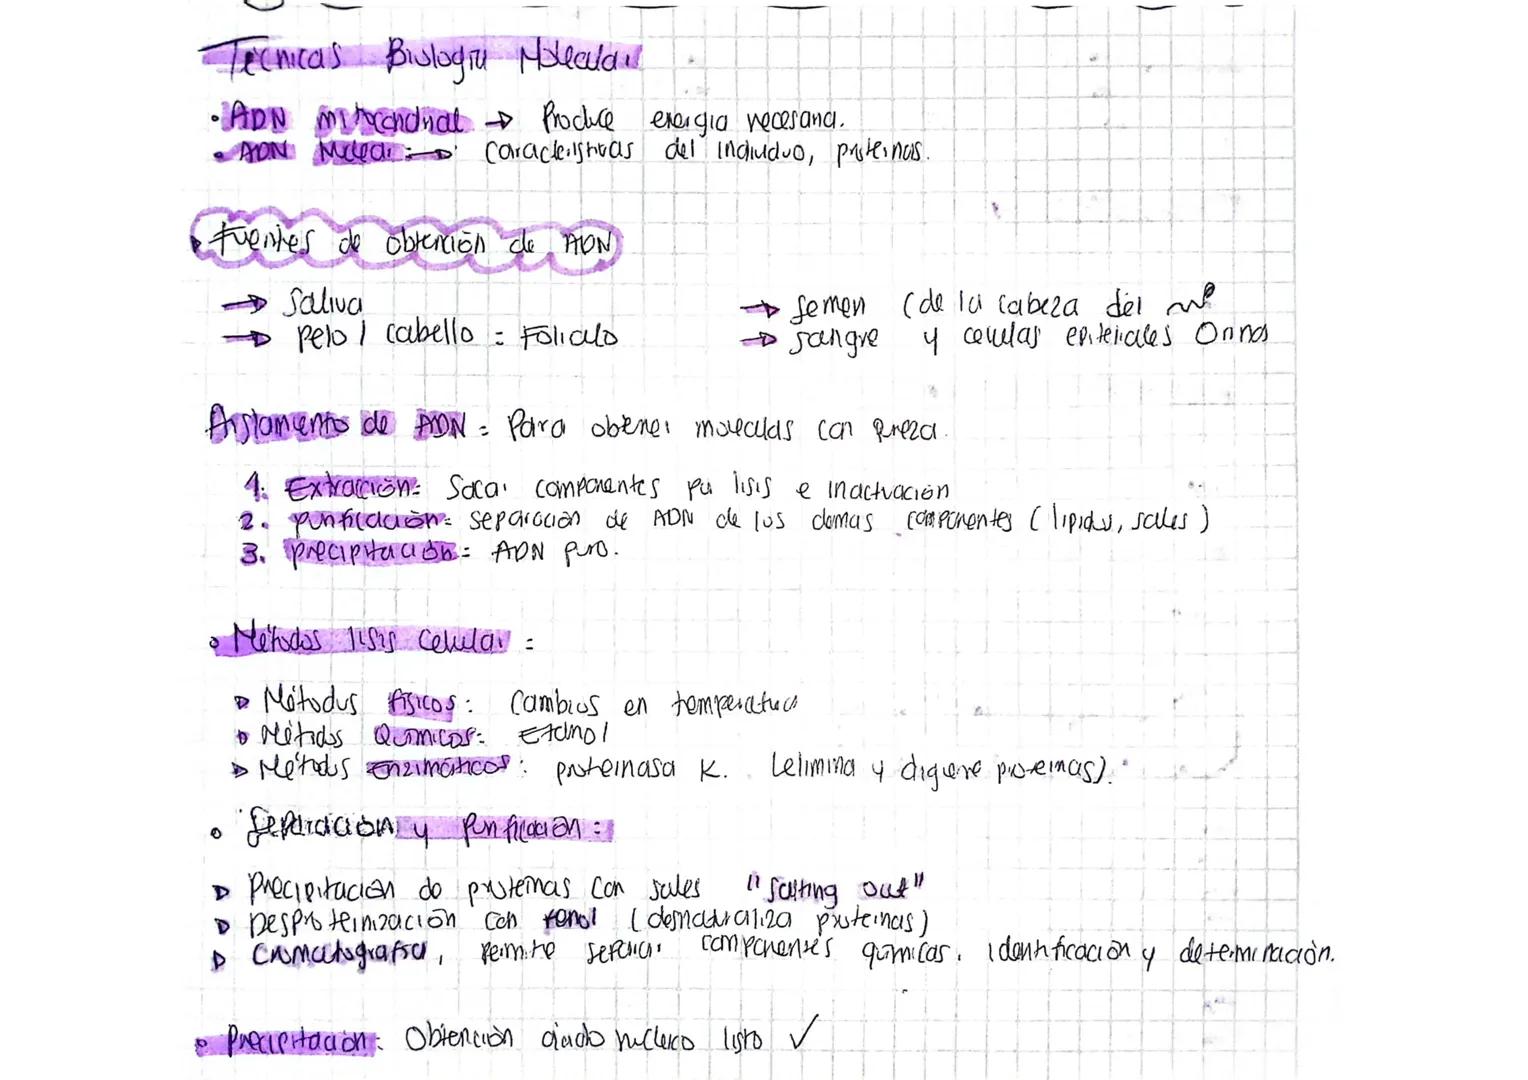 Técnicas Biología Molecular
• ADN mitocondrial → Produce energia necesaria.
• ADN Nuclear: → Caracteristicas del individuo, proteinas.
Fuentes de obtención de ADN
→ Saliva
→ pelo / cabello = Foliculo
→ semen (de la cabeza del
→ sangre y celulas epiteliales Orina
Aislamiento de ADN = Para obtener moleculas con pureza.
1. Extracción: Sacar componentes por lisis e inactivación
2. purificación = separación de ADN de los demas componentes (lipidos, sales)
3. precipitación = ADN puro.
• Métodos lisis celular =
Métodos físicos: Cambios en temperatura
Métodos Químicos: Etanol
Métodos Enzimáticos: proteinasa K. (elimina y digiere proteinas).
• Separación y purificación:
Precipitación de proteinas con sales "salting out"
Desproteinización con fenol (desnaturaliza proteinas)
Cromatografia, permite separar componentes químicos, identificación y determinación.
• Precipitación: Obtención ácido nucleico listo ✓